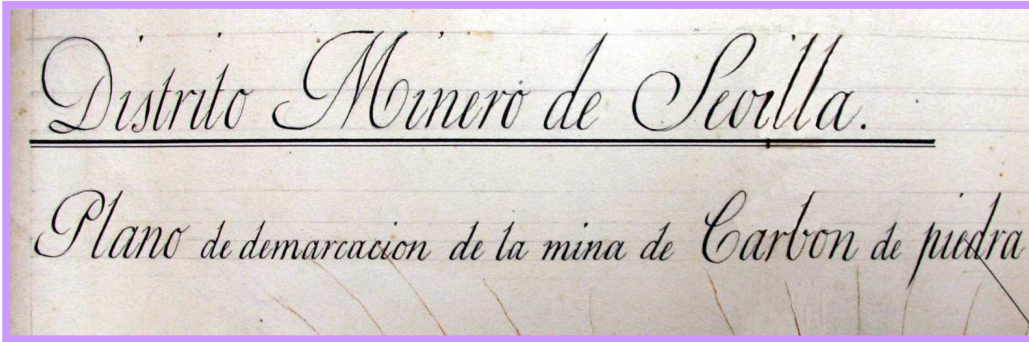 Distrito Minero de Sevilla.
Plano de demarcacion de la mina de Carbon de piedra